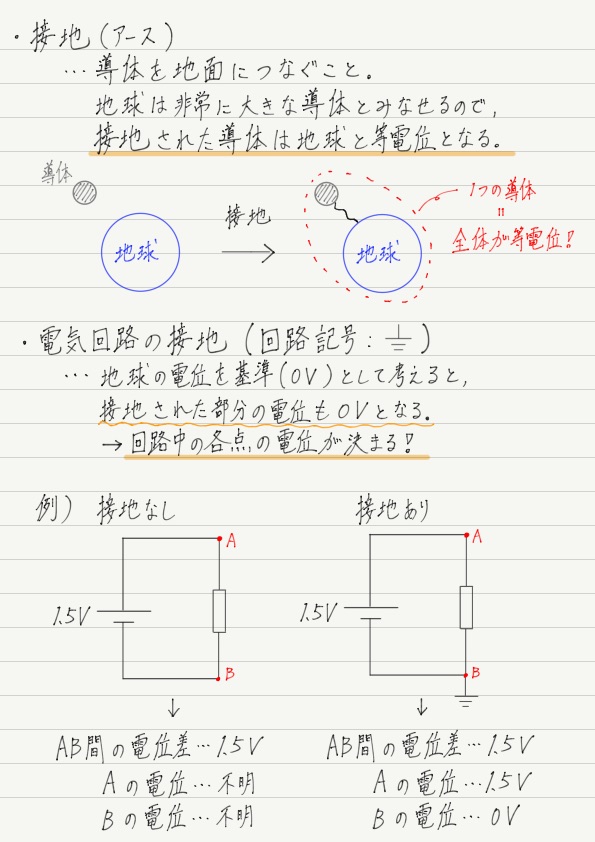 ・接地(アース)
…導体を地面につなぐこと。
地球は非常に大きな導体とみなせるので,
接地された導体は地球と等電位となる。
導体
地球
接地
地球
1つの導体
=
全体が等電位!
・電気回路の接地(回路記号:⏚)
…地球の電位を基準(0V)として考えると,
接地された部分の電位も0Vとなる。
→回路中の各点の電位が決まる!
例) 接地なし
接地あり
A
1.5V
B
A
1.5V
B
↓
AB間の電位差…1.5V
Aの電位…不明
Bの電位…不明
↓
AB間の電位差…1.5V
Aの電位…1.5V
Bの電位…0V